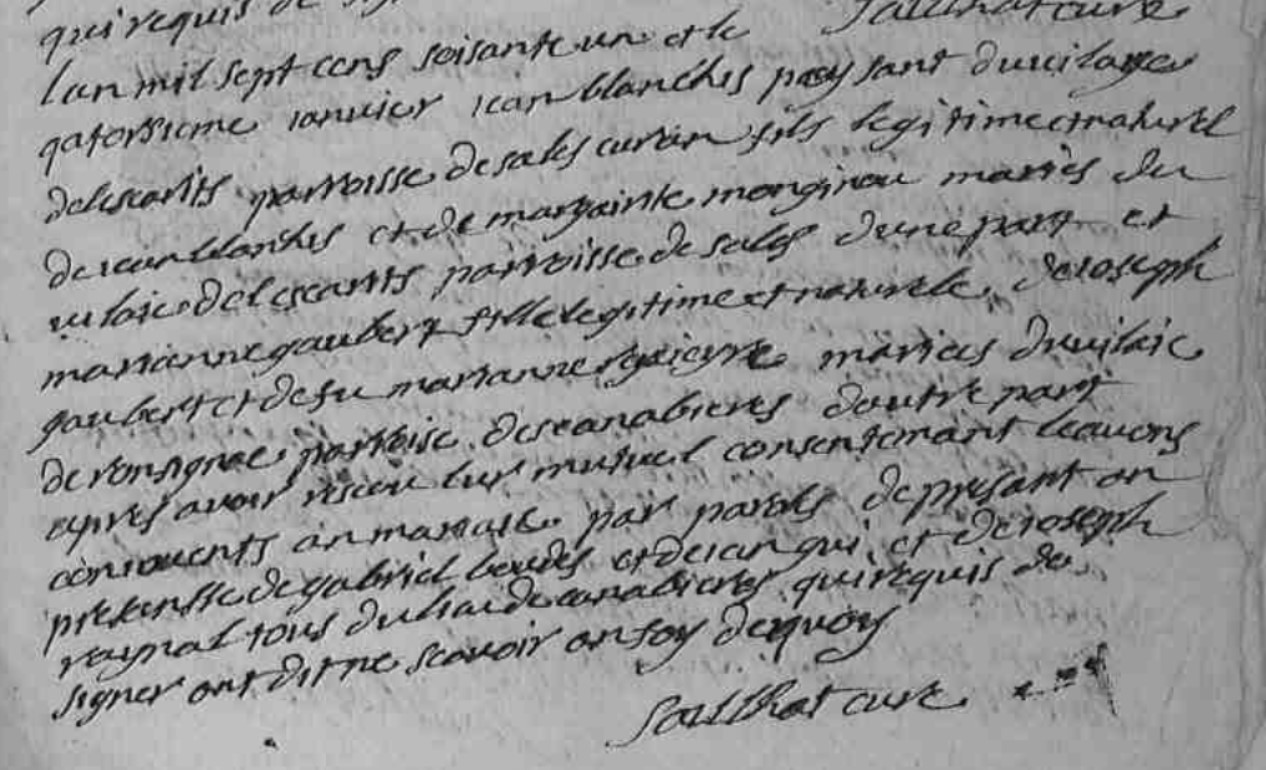 qui requis de
Saillhat curé
lan mil sept cens soisante un et le
qatorsieme ianvier iean blanchis paysant du vilage
delescarits parroisse de sales curan fils legitime et naturel
de iean blanchis et de margainte monginou mariés du
vilaie delescarits parroisse de sales dune part et
marianne gaubert fille legitime et naturele de ioseph
gaubert et de fu marianne mariees du vilaie
de ronsignac parroise des canabieres doutre part
apres avoir reseu lur mutuel consentemant le avons
coniouents an mariaie par parols de presant an
presensse de gabriel boudes et de ian gui et de ioseph
raynal tous du liu de canabieres qui requis de
signer ont dit ne scavoir an foy dequoy
Saillhat curé